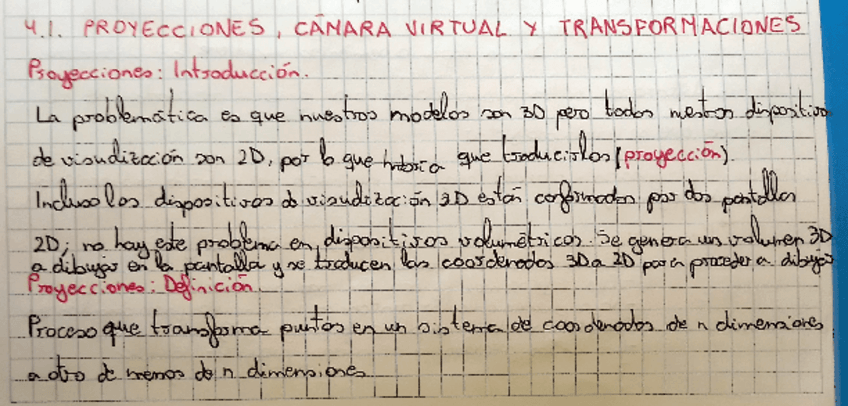 4.1. PROYECCIONES, CÁMARA VIRTUAL Y TRANSFORMACIONES
Proyecciones: Introducción.
La problemática es que nuestros modelos son 3D pero todos nuestros dispositivos
de visualización son 2D, por lo que habría que traducirlos (proyección).
Incluso los dispositivos de visualización 3D están conformados por dos pantallas
2D; no hay este problema en dispositivos volumétricos. Se genera un volumen 3D
a dibujar en la pantalla y se traducen las coordenadas 3D a 2D para proceder a dibujar
Proyecciones: Definición
Proceso que transforma puntos en un sistema de coordenadas de n dimensiones
a otro de menos de n dimensiones